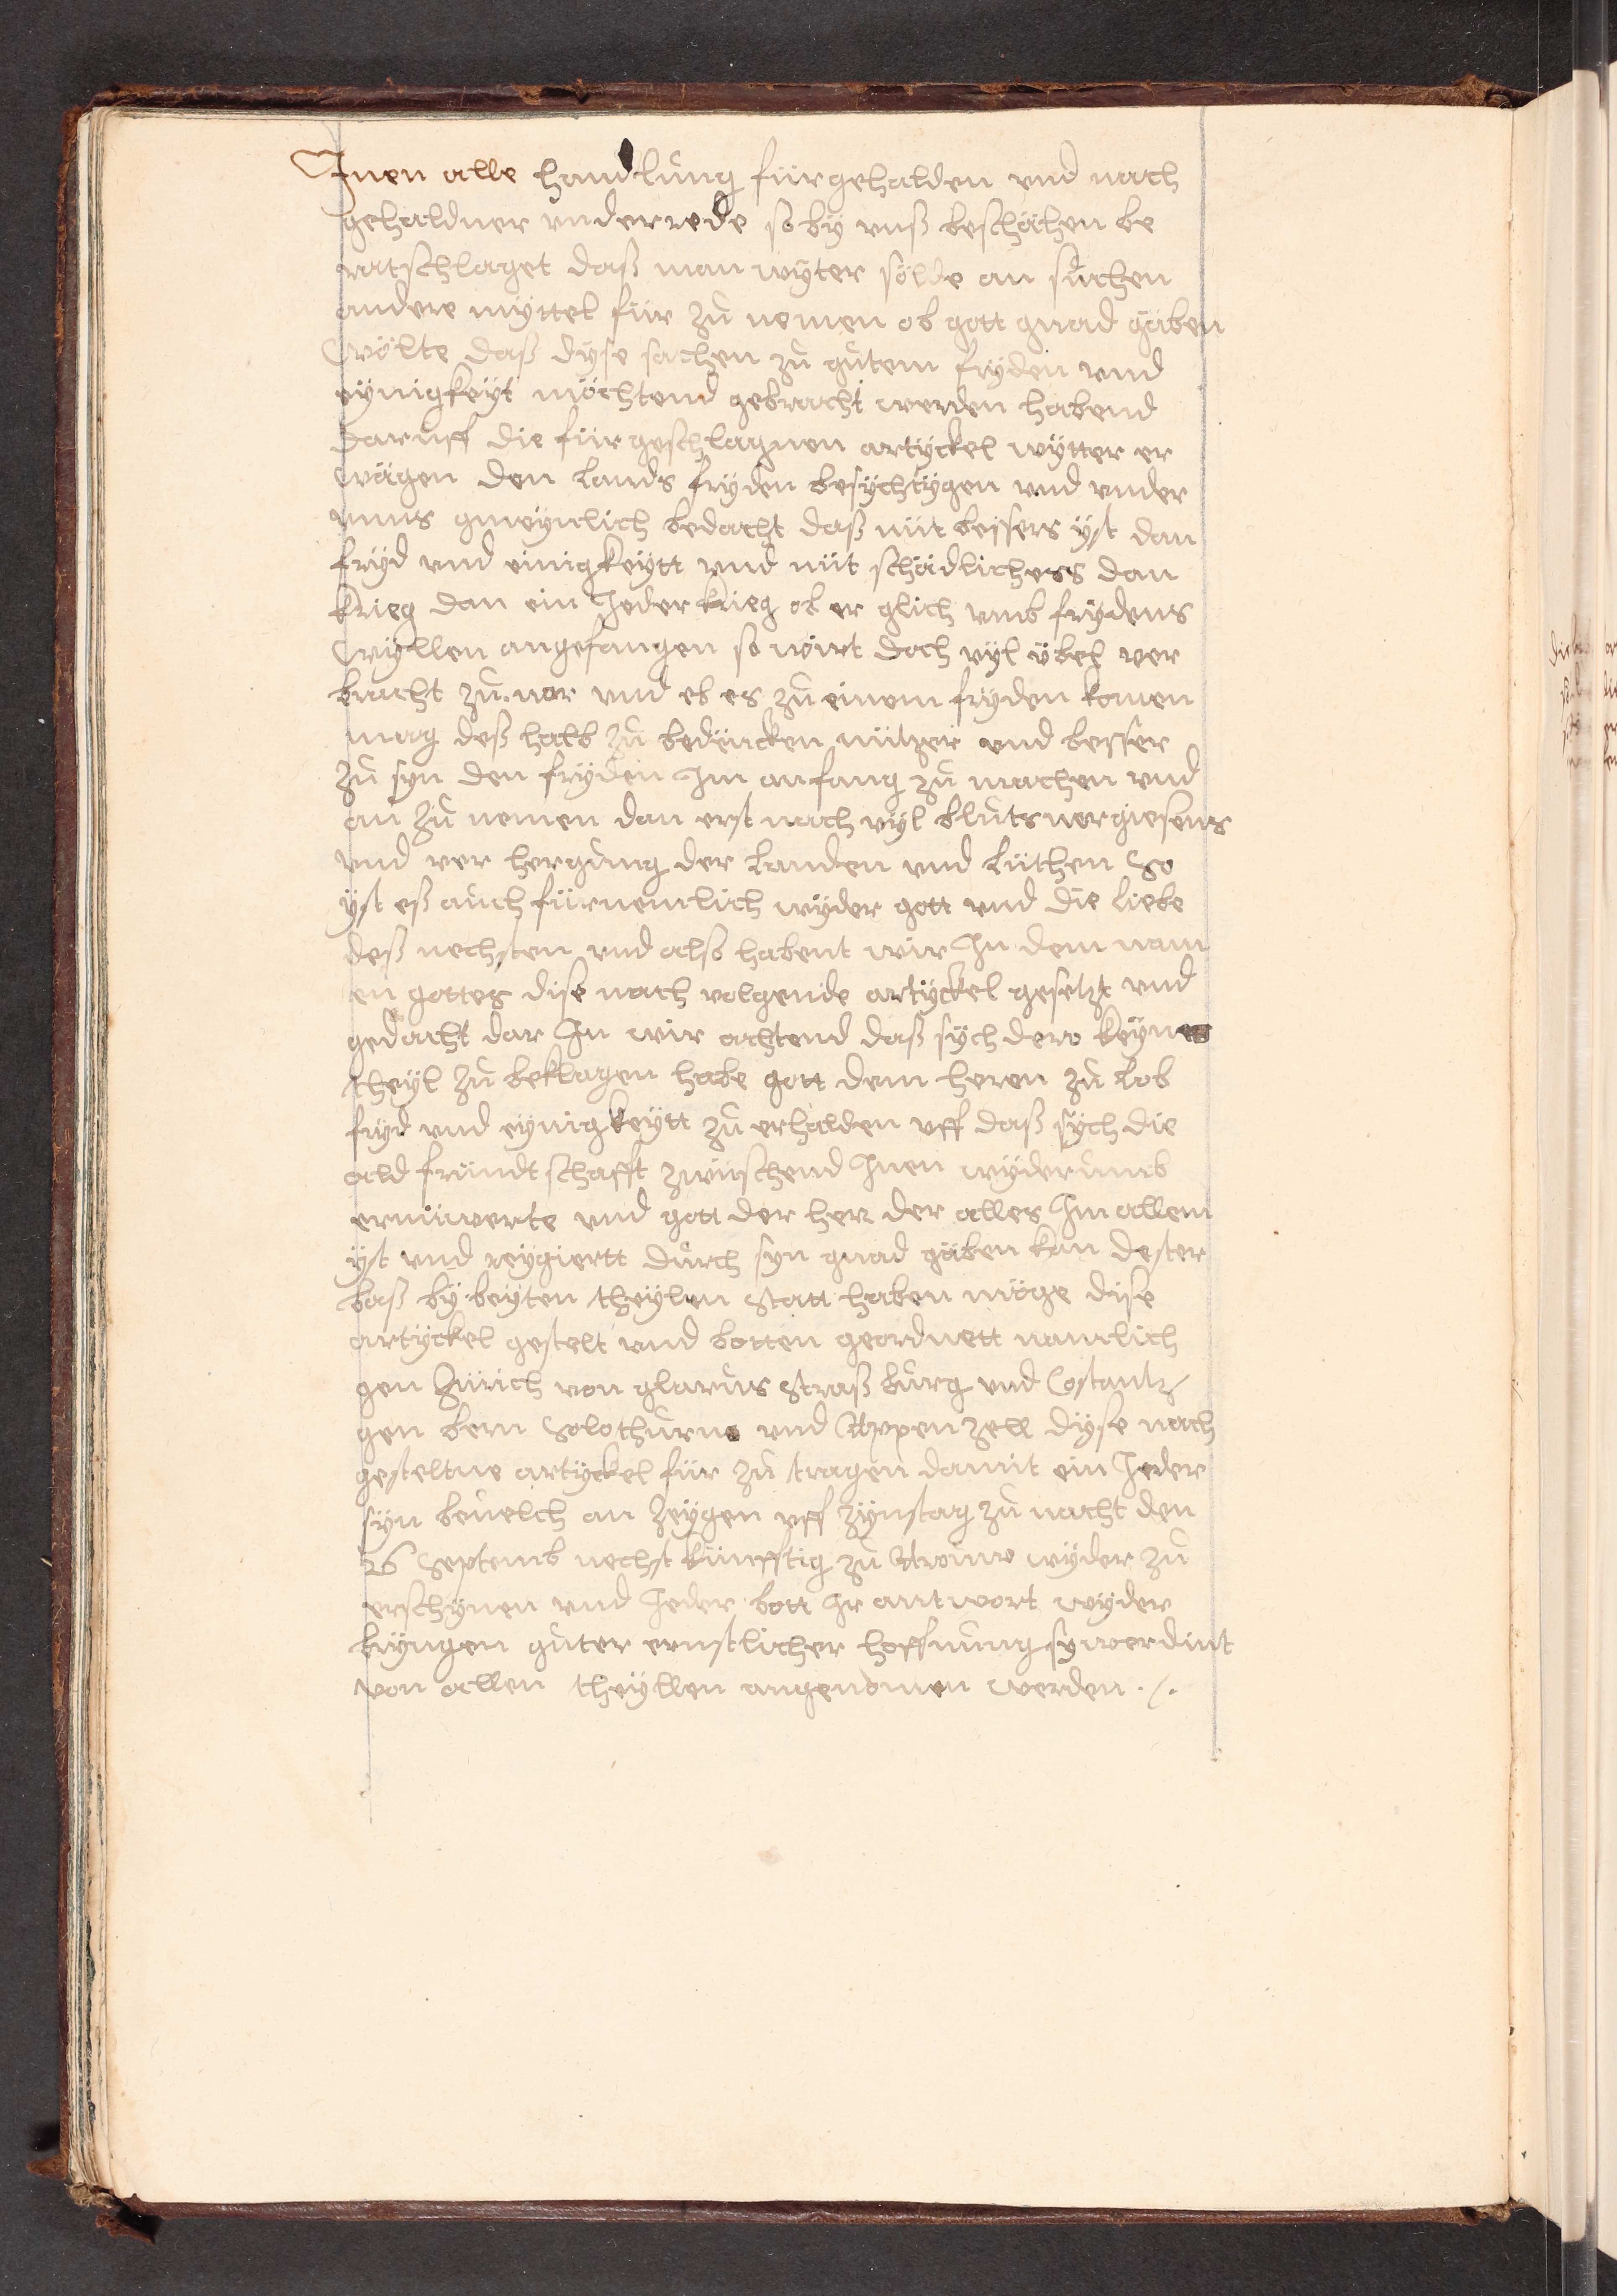 Inen alle handlung fürgehalden vnd nach
gehaldner vnderrede so by vnß beschähen be
ratschlaget daß man wyter sölde an suchen
andere myttel für zu nemen ob gott gnad gäben
Wölte daß dyse sachen zu gutem fryden vnd
eynigkeyt möchtend gebracht werden habend
daruff die fürgeschlagnen artyckel wytter er
wägen den Lands fryden besychtygen vnd vnder
vnns gmeynlich bedacht daß nüt bessers yst dan
fryd vnd einigkeytt vnd nüt schädlichers dan
krieg dan ein Jeder krieg ob er glich vmb frydens
Wyllen angefangen so wirt doch vyl übel ver
bracht zu uor vnd eb es zu einem fryden komen
mag deß halb zu bedencken nützer vnd besser
zu syn den fryden Im anfang zu machen vnd
an zu nemen dan erst nach vyl bluts uergiesens
vnd ver hergung der Landen vnd Lüthen So
yst eß auch fürnemlich wyder gott vnd die liebe
deß nechsten vnd also habent wir In dem nam
en gottes dise nach volgende artyckel gesetzt vnd
gedacht dar In wir achtend daß sych dero keynes
theyl zu beklagen habe gott dem heren zu Lob
fryd vnd eynigkeytt zu erhalden vff daß sych die
ald fründtschafft zwüschend Inen wyderumb
ernüwerte vnd gott der herr der alles Im allem
yst vnd reygiertt durch syn gnad gäben kan dester
baß by beyten theylen Statt haben möge dise
artyckel gestelt vnd botten geordnett namlich
gen Zürich von glarus Straßburg vnd Costantz
gen bern Solothurn vnd Appenzell dyse nach
gesteltne artyckel für zu tragen damit ein Jeder
syn beuelch an zeygen vff zynstag zu nacht den
26 Septemb nechst künfftig zu Arouw wyder zu
erschynen vnd Jeder bott Ir antwort wyder
bryngen guter ernstlicher hoffnung sy werdint
von allen theyllen angenomen werden ./.